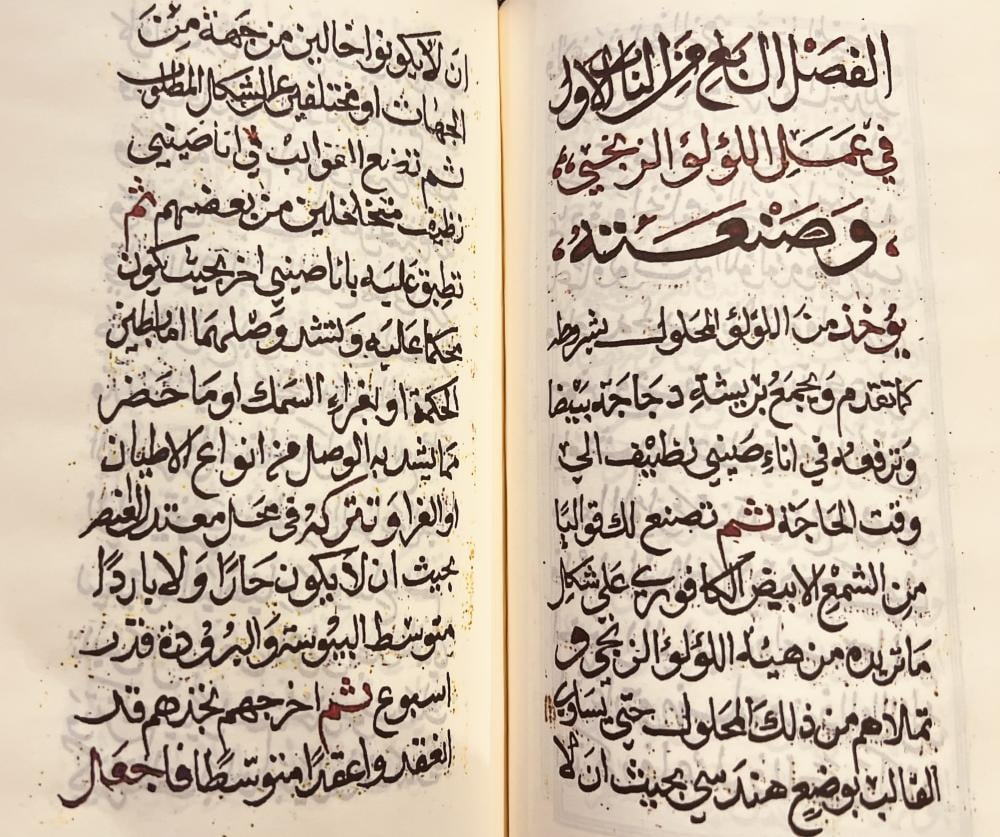 الفصل الرابع من الباب الاول
في عمل اللؤلؤ الزنجي
وصنعته
يؤخذ من اللؤلؤ المحلول بشروطه
كما تقدم ويجمع بريشة دجاجة بيضا
وترفعه في اناء صيني نظيف الى
وقت الحاجة ثم تصنع لك قوالبا
من الشمع الابيض الكافوري على شكل
ما تريده من هيئة اللؤلؤ الزنجي و
تملاهم من ذلك المحلول حتى يساوي
القالب بوضع هندسي بحيث ان لا
ان لا يكونوا خالين من جهة من
الجهات او مختلفين عن الشكل المطلوب
ثم تضع القوالب في انا صيني
نظيف متخلخلين من بعضهم ثم
تطبق عليه بانا صيني اخر بحيث يكون
محكما عليه ولتشد وصلهما اما بطين
الحكمة او بغراء السمك او ما حضر
مما يشد به الوصل من انواع الاطيان
او الغرا وتتركه في محل معتدل
بحيث ان لا يكون حارًا ولا باردًا
متوسط اليبوسة والبرودة قدر
اسبوع ثم اخرجهم تجدهم قد
انعقدوا عقدًا متوسطًا فاجعل